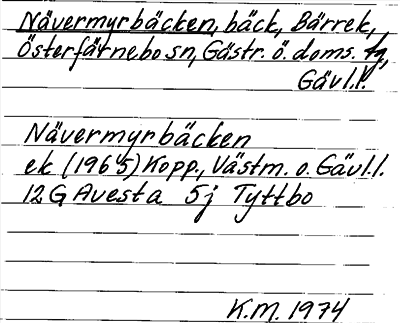 Nävermyrbäcken, bäck, Bärrek,
Österfärnebo sn, Gästr. ö. doms.
Gävl.l.
Nävermyrbäcken
ek (1965) Kopp., Västm. o. Gävl.l.
12G Avesta 5j Tyttbo
K.M. 1974